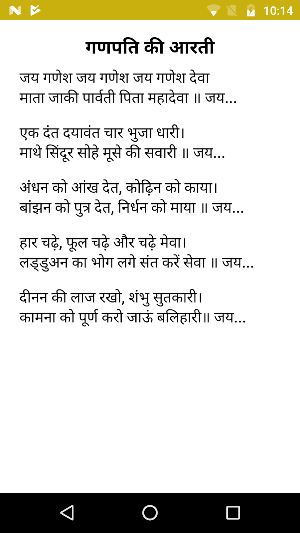 10:14
गणपति की आरती
जय गणेश जय गणेश जय गणेश देवा
माता जाकी पार्वती पिता महादेवा ॥ जय...
एक दंत दयावंत चार भुजा धारी।
माथे सिंदूर सोहे मूसे की सवारी ॥ जय...
अंधन को आंख देत, कोढ़िन को काया।
बांझन को पुत्र देत, निर्धन को माया ॥ जय...
हार चढ़े, फूल चढ़े और चढ़े मेवा।
लड्डुअन का भोग लगे संत करें सेवा ॥ जय...
दीनन की लाज रखो, शंभु सुतकारी।
कामना को पूर्ण करो जाऊं बलिहारी॥ जय...